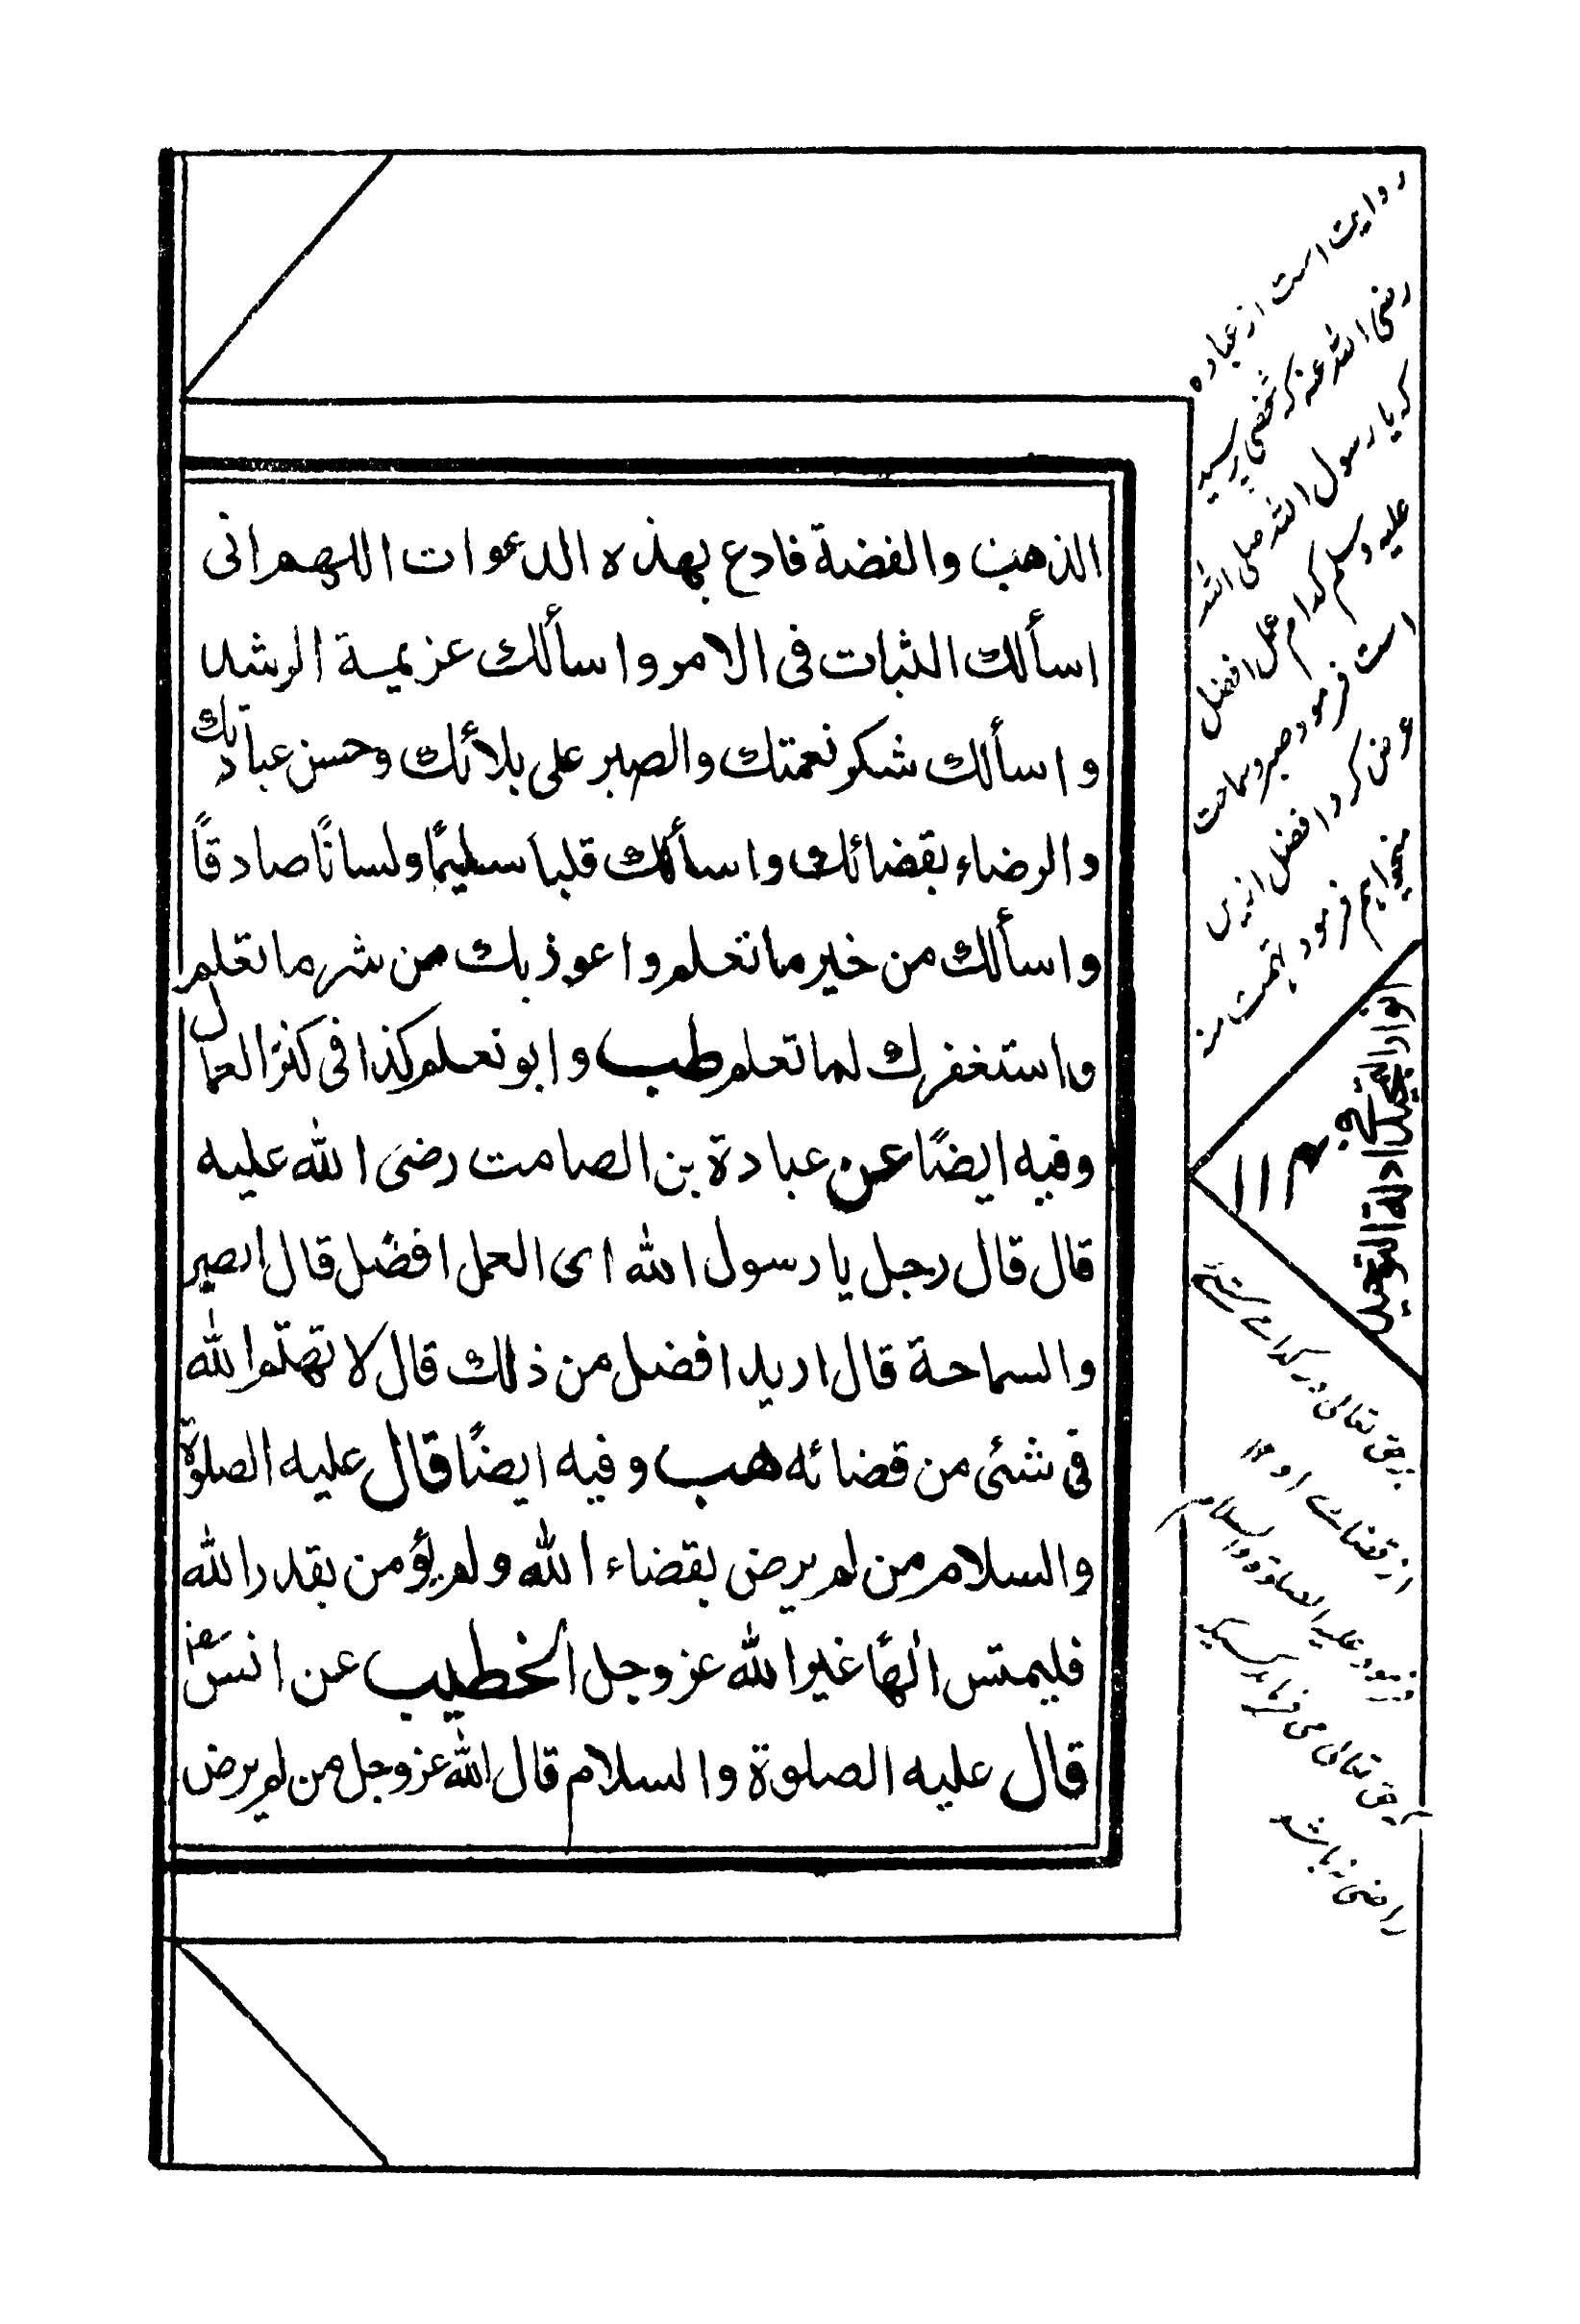 الذهب والفضة فادع بهذه الدعوات اللهم انى
اسألك الثبات فى الامر واسألك عزيمة الرشد
واسألك شكر نعمتك والصبر على بلائك وحسن عبادتك
والرضاء بقضائك واسألك قلبا سليمًا ولسانًا صادقًا
واسألك من خير ما تعلم واعوذ بك من شر ما تعلم
واستغفرك لما تعلم طب وابو نعلم كذا فى كنز العمال
وفيه ايضًا عن عبادة بن الصامت رضى الله عليه
قال قال رجل يا رسول الله اى العمل افضل قال الصبر
والسماحة قال اريد افضل من ذلك قال لا تهتموا لله
فى شئى من قضائه هب وفيه ايضًا قال عليه الصلوة
والسلام من لم يرض بقضاء الله ولم يؤمن بقدر الله
فليمتس الهًا غير الله عز وجل الخطيب عن انس
قال عليه الصلوة والسلام قال الله عز وجل من لم يرض
روايت است از عباده
رضى الله عنه كه شخصى پرسيد
كه يا رسول الله صلى الله
عليه وسلم كدام عمل افضل
است فرمود صبر وسماحت
عرض كرد افضل ازين
ميخواهم فرمود تهمت منه
ادلة التوحيد
١١٢
بر حق تعالى در كدامے
از قضاے او
فرمود عليه الصلوة والسلام
حق تعالى مى فرمايد كسيكه
راضى نباشد